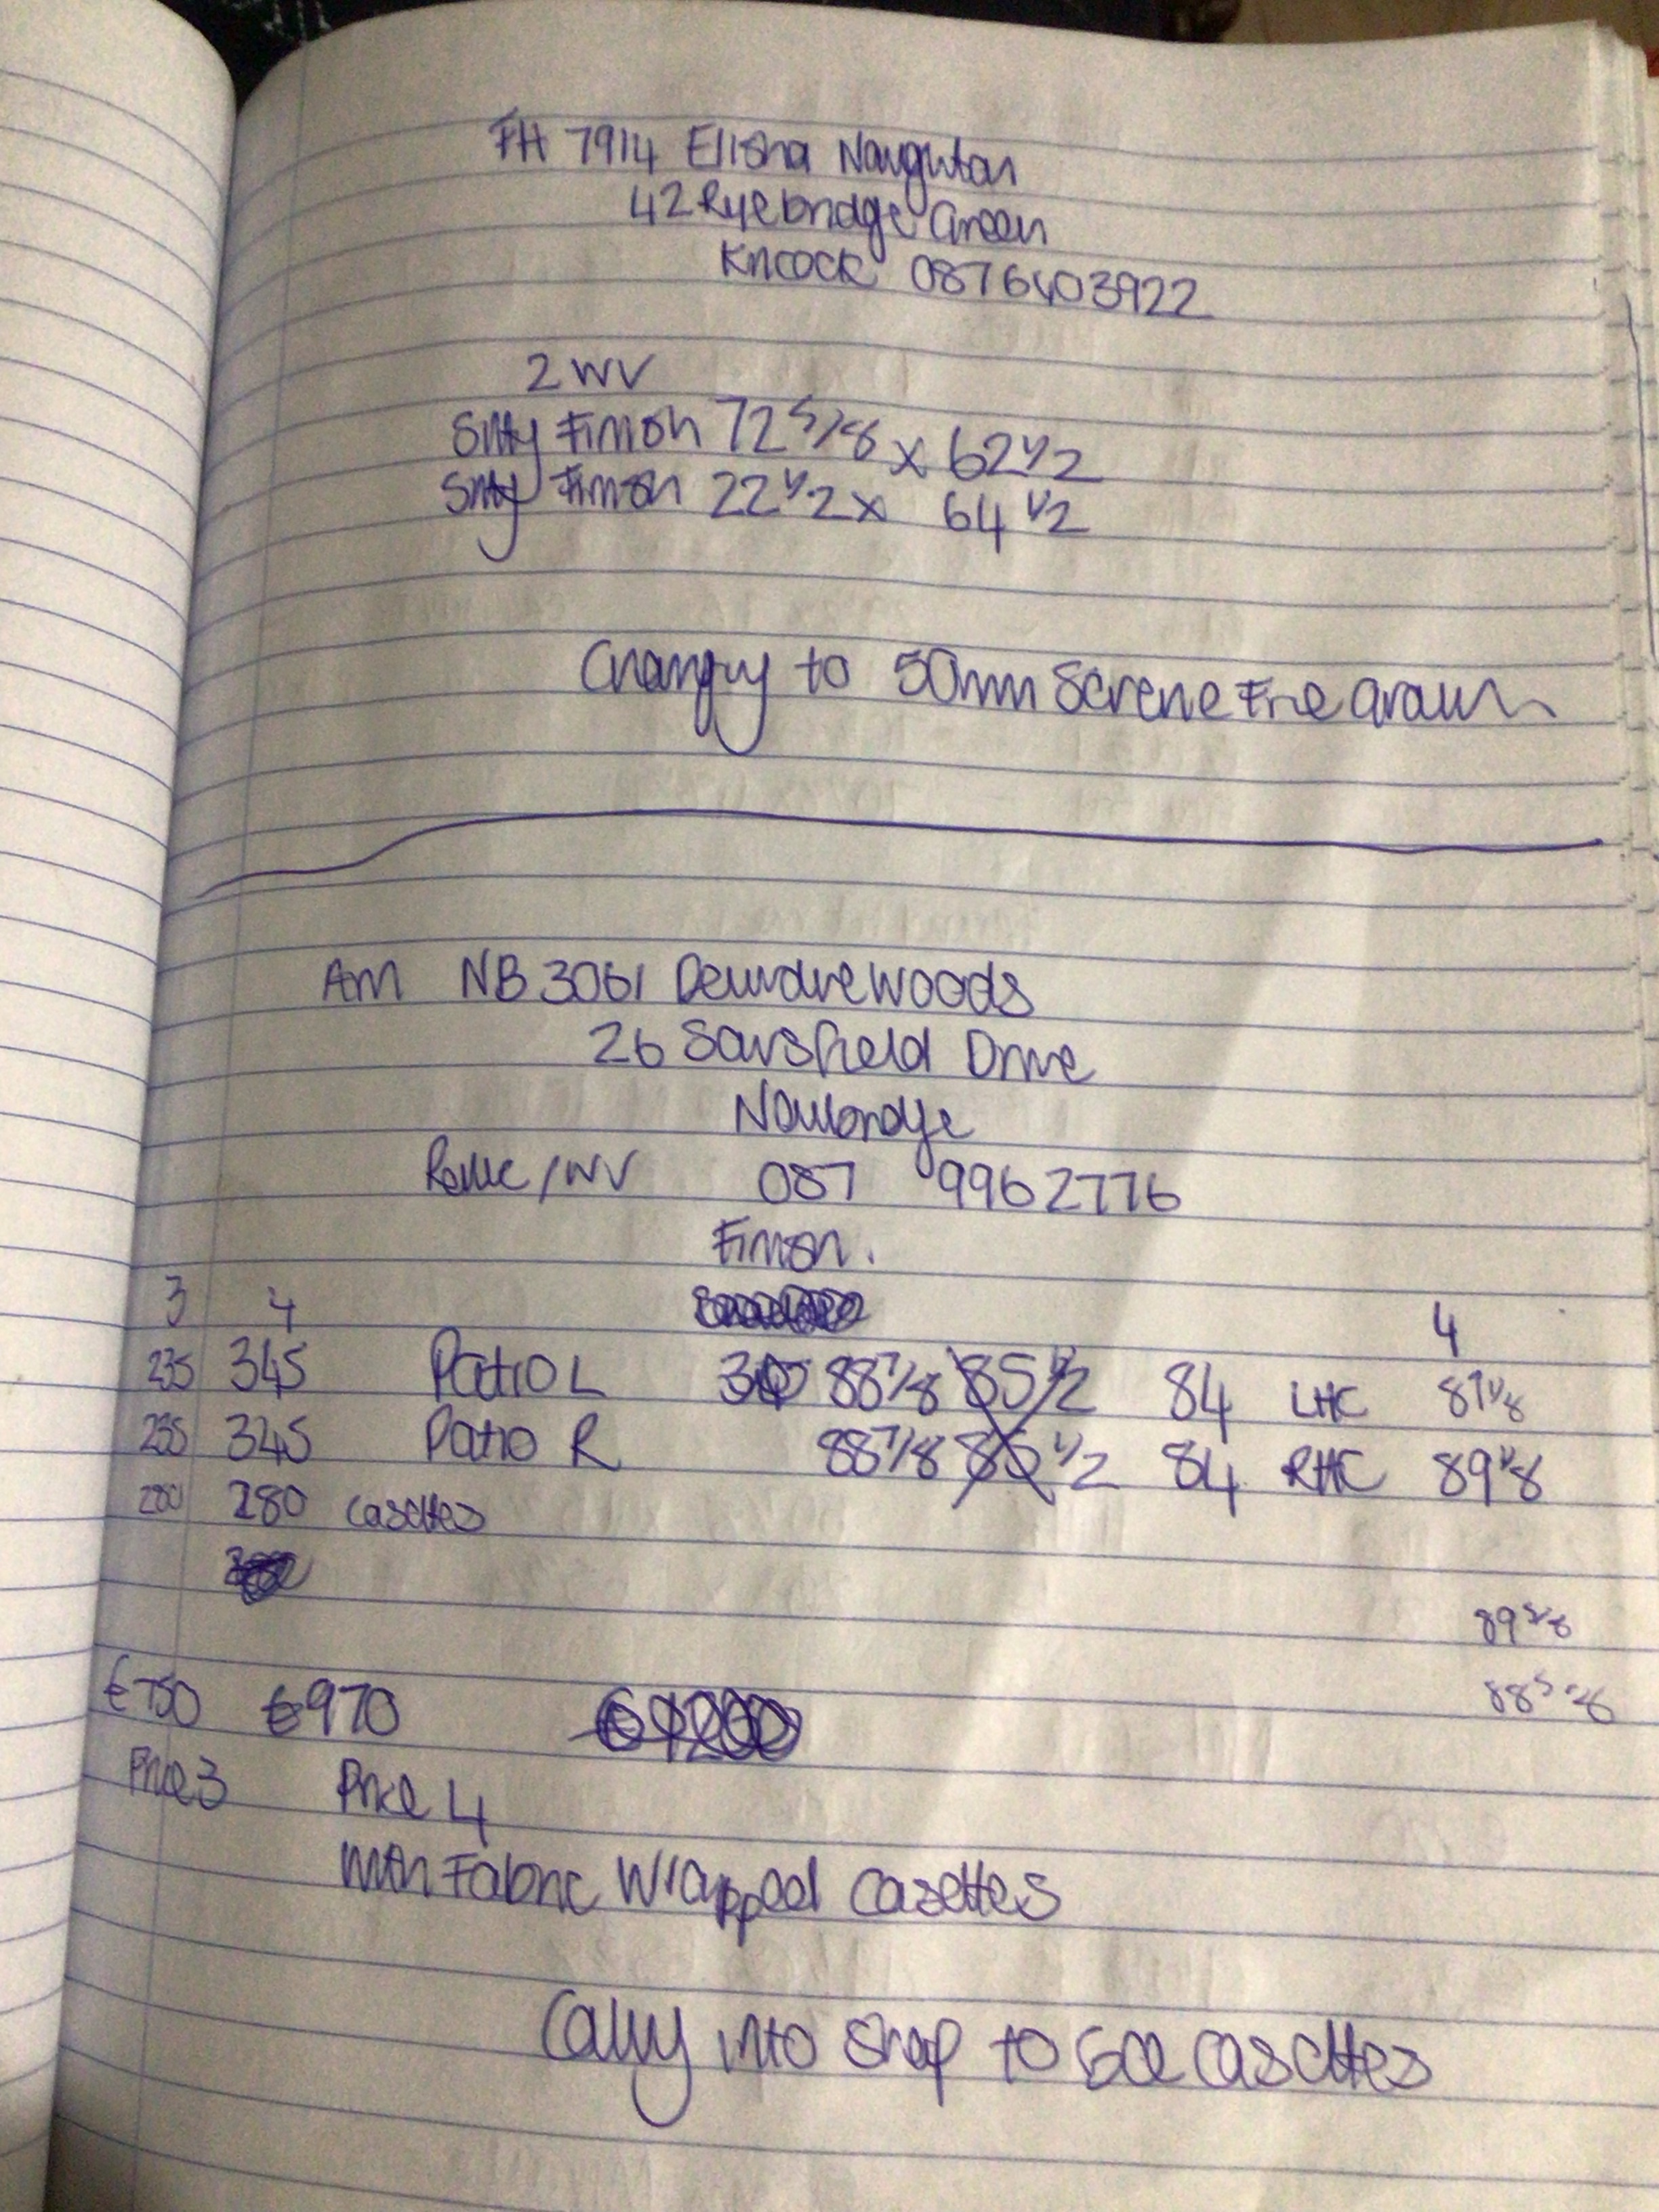 FH 7914 Elisha Naughton
42 Ryebridge Green
Kilcock 0876403922
2 WV
Sitty Finish 72 5/8 x 62 1/2
Sitty Finish 22 1/2 x 64 1/2
Changing to 50mm Screne Fine Grain
Am NB 3061 Deirdre Woods
26 Sarsfield Drive
Newbridge
/WV 087 9962776
Finish.
3 4 4
235 345 Patio L 88 7/8 85 1/2 84 LHC 87 1/8
235 345 Patio R 88 7/8 85 1/2 84 RHC 89 1/8
280 280 casettes
89 5/8
88 5/8
€750 €970
Price 3 Price 4
With Fabric Wrapped Casettes
Calling into shop to see casettes